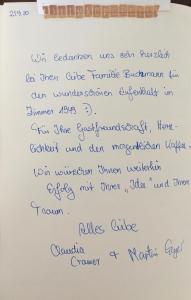 Wir bedanken uns sehr herzlich
bei Ihnen liebe Familie Buchmann für
den wunderschönen Aufenthalt im
Zimmer 1949 :).
Für Ihre Gastfreundschaft, Herz-
lichkeit und den morgentlichen Kaffee.
Wir wünschen Ihnen weiterhin
Erfolg mit Ihrer "Idee und Ihrem
Traum.
Alles Liebe
Claudia
Cramer + Martin